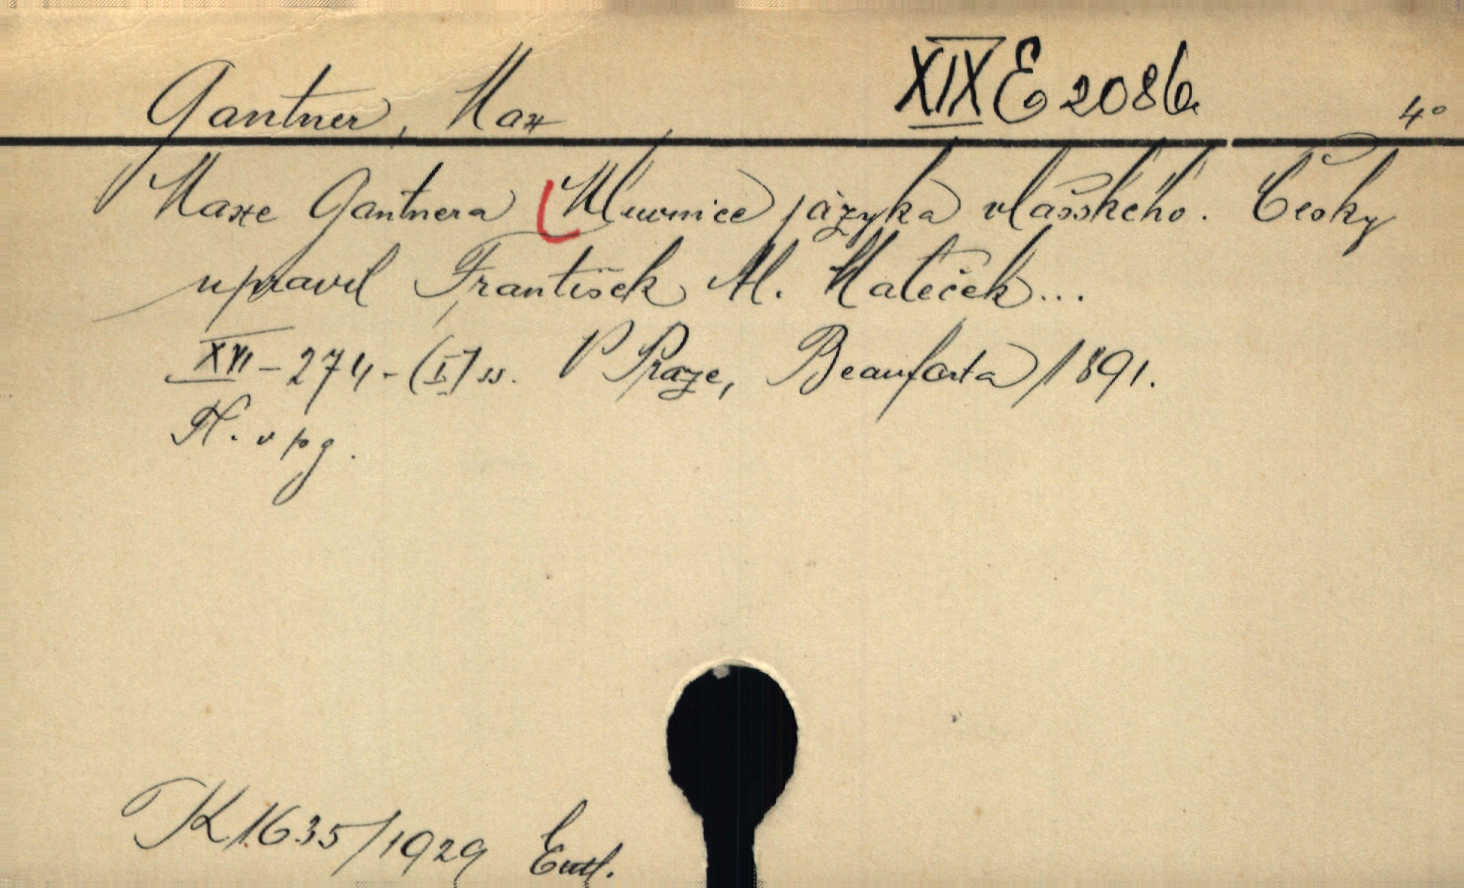 Gantner, Max XIX E 2086 4°
Maxe Gantnera Mluvnice jazyka vlašského. Česky
upravil František M. Mateček...
XVI-274-(I) ss. V Praze, Beauforta 1891.
N. v pg.
K 1635/1929